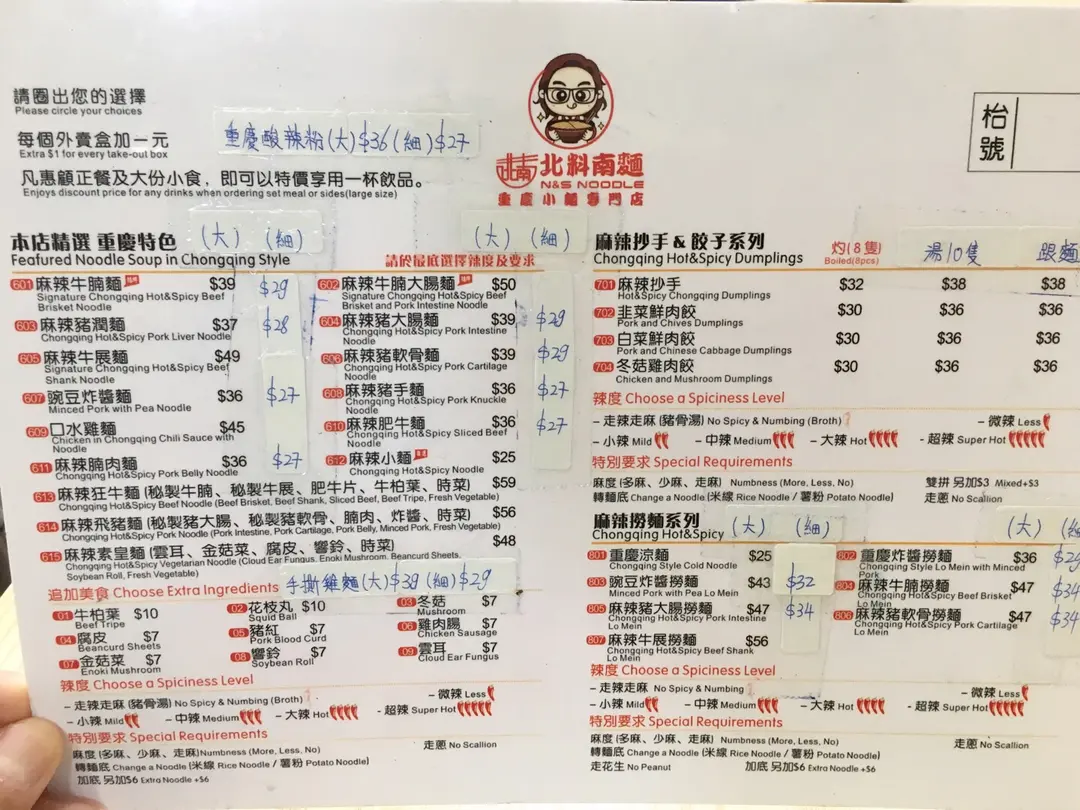 請圈出您的選擇
Please circle your choices
每個外賣盒加一元
Extra $1 for every take-out box
重慶酸辣粉(大)$36(細)$27
凡惠顧正餐及大份小食，即可以特價享用一杯飲品。
Enjoys discount price for any drinks when ordering set meal or sides(large size)
北料南麵
N&S NOODLE
重慶小麵專門店
枱號
本店精選 重慶特色 (大) (細) (大) (細)
Featured Noodle Soup in Chongqing Style 請於最底選擇辣度及要求
601 麻辣牛腩麵 $39 $29
Signature Chongqing Hot&Spicy Beef
Brisket Noodle
602 麻辣牛腩大腸麵 $50
Signature Chongqing Hot&Spicy Beef
Brisket and Pork Intestine Noodle
603 麻辣豬潤麵 $37 $28
Chongqing Hot&Spicy Pork Liver Noodle
604 麻辣豬大腸麵 $39 $29
Chongqing Hot&Spicy Pork Intestine
Noodle
605 麻辣牛展麵 $49
Signature Chongqing Hot&Spicy Beef
Shank Noodle
606 麻辣豬軟骨麵 $39 $29
Chongqing Hot&Spicy Pork Cartilage
Noodle
607 豌豆炸醬麵 $36 $27
Minced Pork with Pea Noodle
608 麻辣豬手麵 $36 $27
Chongqing Hot&Spicy Pork Knuckle
Noodle
609 口水雞麵 $45
Chicken in Chongqing Chili Sauce with
Noodle
610 麻辣肥牛麵 $36 $27
Chongqing Hot&Spicy Sliced Beef
Noodle
611 麻辣腩肉麵 $36 $27
Chongqing Hot&Spicy Pork Belly Noodle
612 麻辣小麵 $25
Chongqing Hot&Spicy Noodle
613 麻辣狂牛麵 (秘製牛腩、秘製牛展、肥牛片、牛柏葉、時菜) $59
Chongqing Hot&Spicy Beef Noodle (Beef Brisket, Beef Shank, Sliced Beef, Beef Tripe, Fresh Vegetable)
614 麻辣飛豬麵 (秘製豬大腸、秘製豬軟骨、腩肉、炸醬、時菜) $56
Chongqing Hot&Spicy Pork Noodle (Pork Intestine, Pork Cartilage, Pork Belly, Minced Pork, Fresh Vegetable)
615 麻辣素皇麵 (雲耳、金菇菜、腐皮、響鈴、時菜) $48
Chongqing Hot&Spicy Vegetarian Noodle (Cloud Ear Fungus, Enoki Mushroom, Beancurd Sheets,
Soybean Roll, Fresh Vegetable)
追加美食 Choose Extra Ingredients 手撕雞麵(大)$39(細)$29
01 牛柏葉 $10
Beef Tripe
02 花枝丸 $10
Squid Ball
03 冬菇 $7
Mushroom
04 腐皮 $7
Beancurd Sheets
05 豬紅 $7
Pork Blood Curd
06 雞肉腸 $7
Chicken Sausage
07 金菇菜 $7
Enoki Mushroom
08 響鈴 $7
Soybean Roll
09 雲耳 $7
Cloud Ear Fungus
辣度 Choose a Spiciness Level
- 走辣走麻 (豬骨湯) No Spicy & Numbing (Broth) - 微辣 Less
- 小辣 Mild - 中辣 Medium - 大辣 Hot - 超辣 Super Hot
特別要求 Special Requirements
麻度 (多麻、少麻、走麻) Numbness (More, Less, No) 走蔥 No Scallion
轉麵底 Change a Noodle (米線 Rice Noodle / 薯粉 Potato Noodle)
加底 另加$6 Extra Noodle +$6
麻辣抄手 & 餃子系列 灼(8隻) 湯10隻 跟麵
Chongqing Hot&Spicy Dumplings Boiled(8pcs)
701 麻辣抄手 $32 $38 $38
Hot&Spicy Chongqing Dumplings
702 韭菜鮮肉餃 $30 $36 $36
Pork and Chives Dumplings
703 白菜鮮肉餃 $30 $36 $36
Pork and Chinese Cabbage Dumplings
704 冬菇雞肉餃 $30 $36 $36
Chicken and Mushroom Dumplings
辣度 Choose a Spiciness Level
- 走辣走麻 (豬骨湯) No Spicy & Numbing (Broth) - 微辣 Less
- 小辣 Mild - 中辣 Medium - 大辣 Hot - 超辣 Super Hot
特別要求 Special Requirements
麻度 (多麻、少麻、走麻) Numbness (More, Less, No) 雙拼 另加$3 Mixed+$3
轉麵底 Change a Noodle (米線 Rice Noodle / 薯粉 Potato Noodle) 走蔥 No Scallion
麻辣撈麵系列 (大) (細) (大) (細
Chongqing Hot&Spicy
801 重慶涼麵 $25
Chongqing Style Cold Noodle
802 重慶炸醬撈麵 $36
Chongqing Style Lo Mein with Minced
Pork
803 豌豆炸醬撈麵 $43 $32
Minced Pork with Pea Lo Mein
804 麻辣牛腩撈麵 $47 $34
Chongqing Hot&Spicy Beef Brisket
Lo Mein
805 麻辣豬大腸撈麵 $47 $34
Chongqing Hot&Spicy Pork Intestine
Lo Mein
806 麻辣豬軟骨撈麵 $47 $34
Chongqing Hot&Spicy Pork Cartilage
Lo Mein
807 麻辣牛展撈麵 $56
Chongqing Hot&Spicy Beef Shank
Lo Mein
辣度 Choose a Spiciness Level
- 走辣走麻 No Spicy & Numbing - 微辣 Less
- 小辣 Mild - 中辣 Medium - 大辣 Hot - 超辣 Super Hot
特別要求 Special Requirements
麻度 (多麻、少麻、走麻) Numbness (More, Less, No) 走蔥 No Scallion
轉麵底 Change a Noodle (米線 Rice Noodle / 薯粉 Potato Noodle)
走花生 No Peanut 加底 另加$6 Extra Noodle +$6